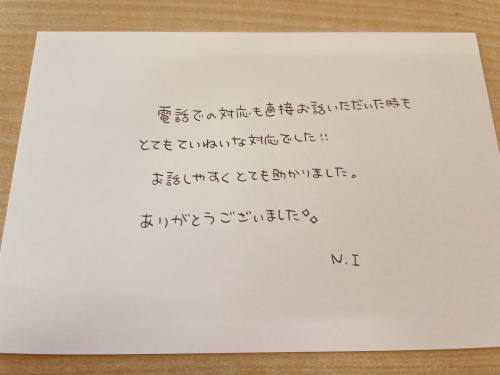 電話での対応も直接お話いただいた時も
とてもていねいな対応でした!!
お話しやすくとても助かりました。
ありがとうございました。
N.I